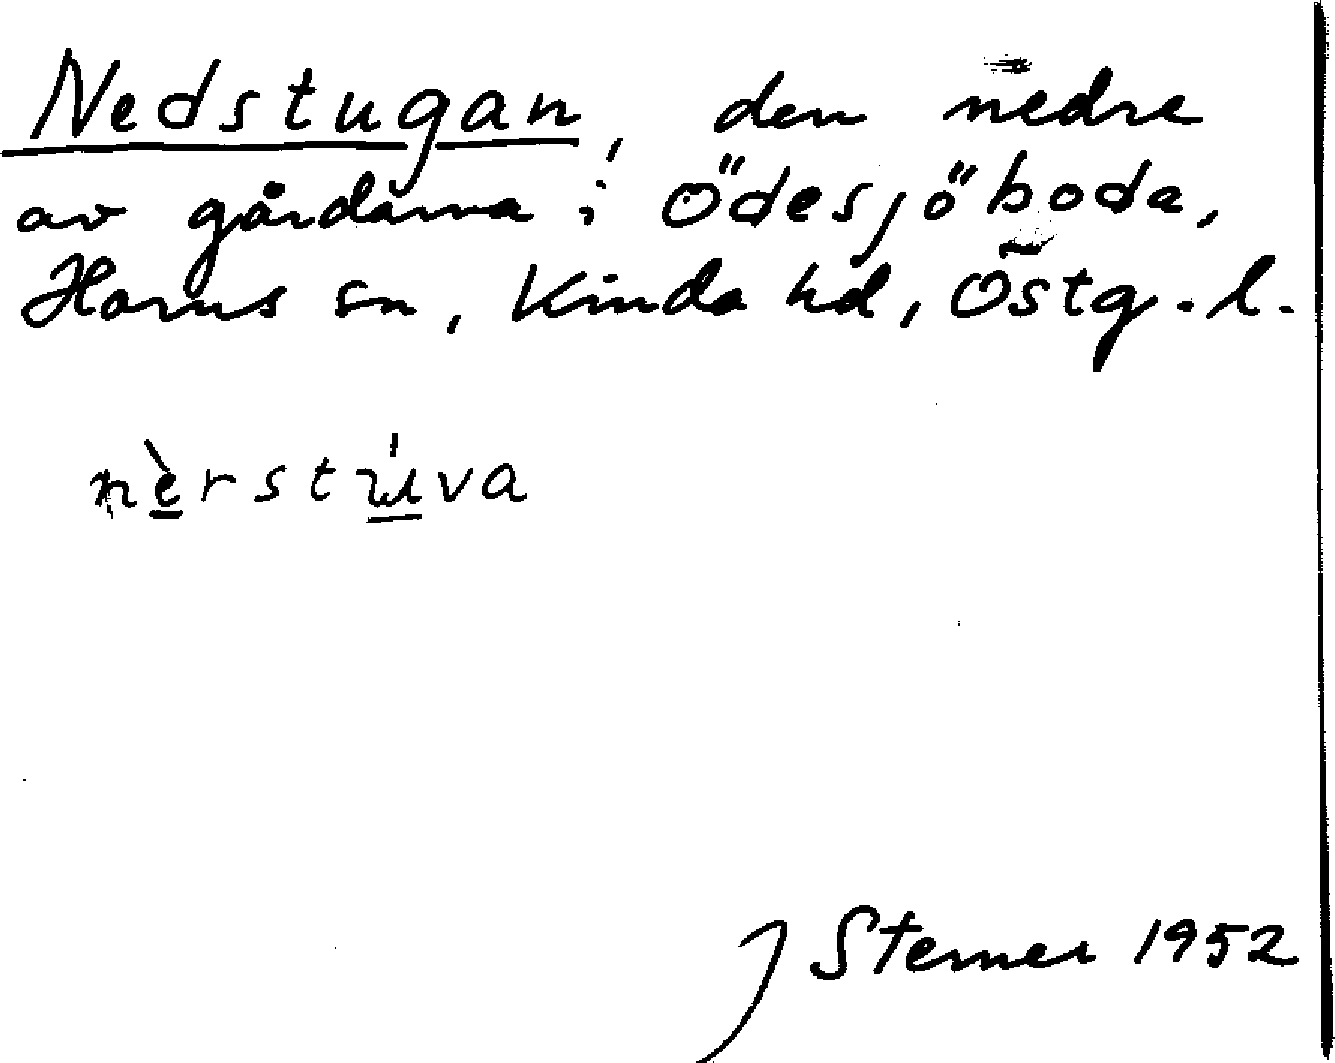 Nedstugan, den nedre
av gårdarna i Ödesjöboda,
Horns sn, Kinda hd, Östg. l.
nèrstúva
J Sterner 1952